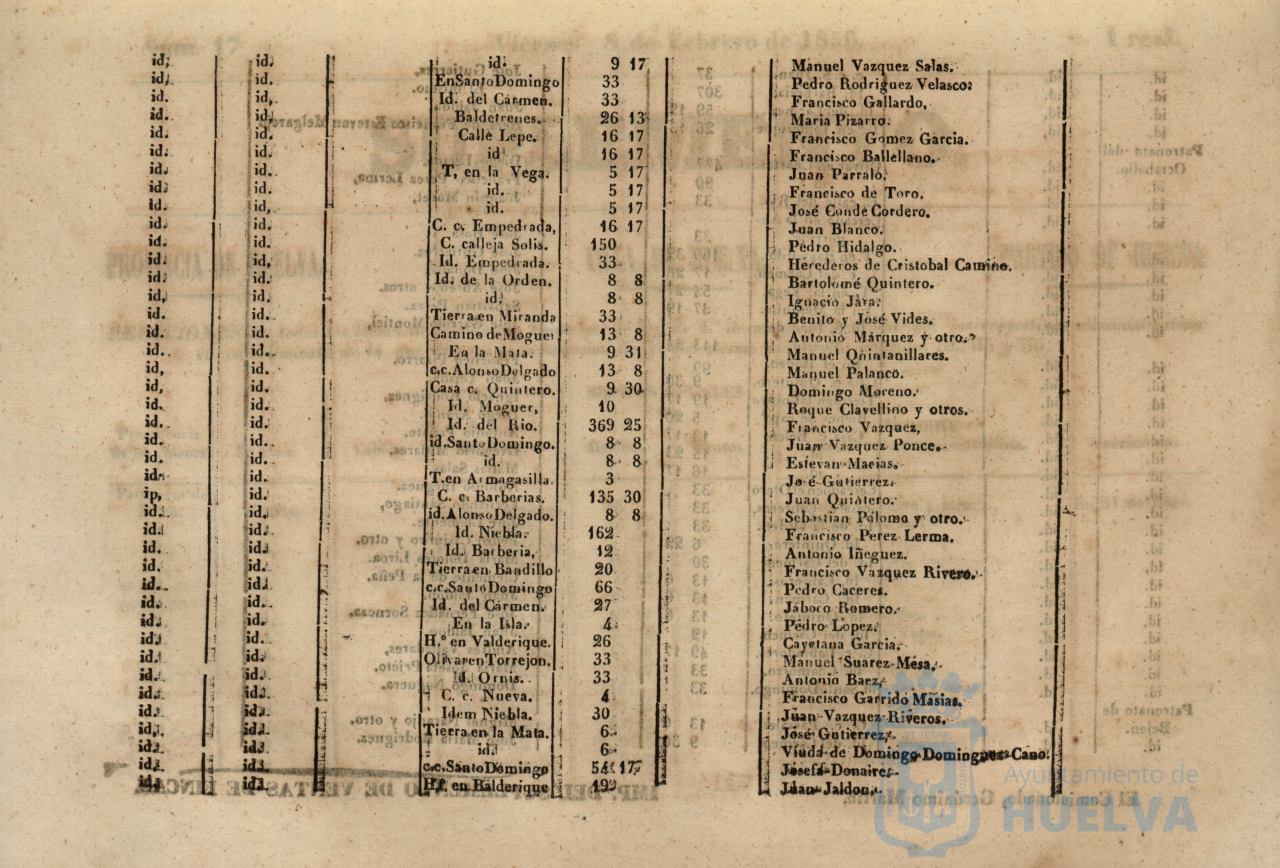 id. id. id. 9 17 Manuel Vazquez Salas.
id. id. En Santo Domingo 33 Pedro Rodriguez Velasco:
id. id, Id. del Carmen. 33 Francisco Gallardo,
id. id. Baldetrenes. 26 13 Maria Pizarro.
id. id. Calle Lepe. 16 17 Francisco Gomez Garcia.
id. id. id 16 17 Francisco Ballellano.
id. id. T, en la Vega. 5 17 Juan Parralo,
id. id. id. 5 17 Francisco de Toro,
id. id, id. 5 17 José Conde Cordero.
id. id. C. c. Empedrada, 16 17 Juan Blanco.
id. id. C. calleja Solis. 150 Pedro Hidalgo.
id. id, Id. Empedrada. 33 Herederos de Cristobal Camino.
id. id. Id. de la Orden. 8 8 Bartolomé Quintero.
id, id. id. 8 8 Ignacio Jara.
id. id. Tierra en Miranda 33 Benito y José Vides.
id. id. Camino de Moguer 13 8 Antonio Márquez y otro.
id.. id.. En la Mata. 9 31 Manuel Quintanillares.
id, id. c.c. Alonso Delgado 13 8 Manuel Palanco.
id, id. Casa c. Quintero. 9 30 Domingo Moreno.
id. id. Id. Moguer, 10 Roque Clavellino y otros.
id. id. Id. del Rio. 369 25 Francisco Vazquez,
id. id. id. Santo Domingo. 8 8 Juan Vazquez Ponce.
id. id. id. 8 8 Estevan Macias.
id. id. T. en Armagasilla. 3 José Gutierrez.
ip, id. C. c. Barberias. 135 30 Juan Quintero.
id. id. id. Alonso Delgado. 8 8 Sebastian Palomo y otro.
id. id. Id. Niebla. 162 Francisco Perez Lerma.
id. id. Id. Barberia, 12 Antonio Iñeguez.
id. id. Tierra en Bandillo 20 Francisco Vazquez Rivero.
id. id. c.c. Santo Domingo 66 Pedro Caceres.
id. id. Id. del Cármen. 27 Jaboco Romero.
id. id. En la Isla. 4 Pedro Lopez.
id. id. H.º en Valderique. 26 Cayetana Garcia.
id. id. Olivar en Torrejon. 33 Manuel Suarez Mesa.
id. id. Id. Ornis. 33 Antonio Baez.
id. id. C. c. Nueva. 4 Francisco Garrido Masias.
id. id. Idem Niebla. 30 Juan Vazquez Riveros.
id. id. Tierra en la Mata. 6 José Gutierrez,
id. id. id. 6 Viuda de Domingo Dominguez Cano.
id. id. c.c. Santo Domingo 54 17 Josefa Donaires
id. id. H. en Balderique 19 Juan Jaldon.
Ayuntamiento de
HUELVA